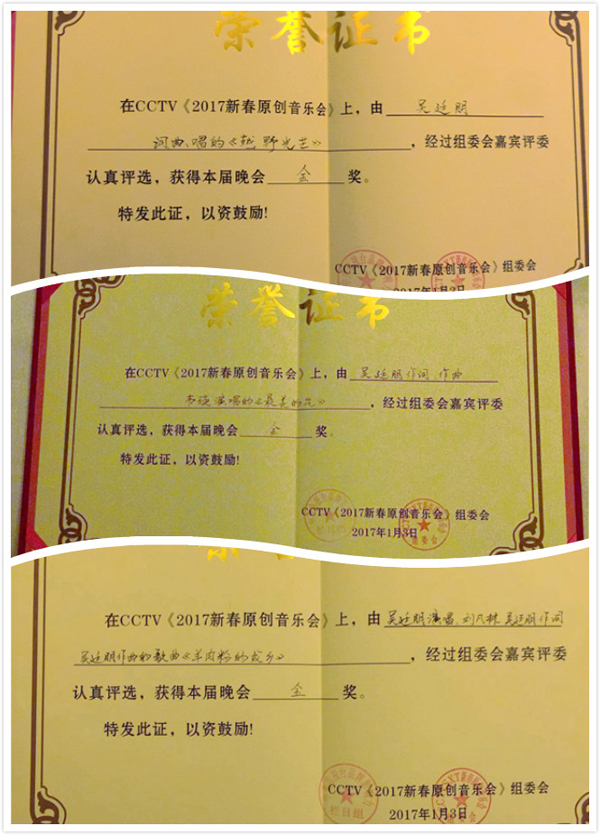 荣誉证书
在CCTV《2017新春原创音乐会》上，由 吴廷明
词曲、唱的《越野光芒》，经过组委会嘉宾评委
认真评选，获得本届晚会 金 奖。
特发此证，以资鼓励！
CCTV《2017新春原创音乐会》组委会
2017年1月3日
荣誉证书
在CCTV《2017新春原创音乐会》上，由 吴廷明作词 作曲
演唱的《最美的花》，经过组委会嘉宾评委
认真评选，获得本届晚会 金 奖。
特发此证，以资鼓励！
CCTV《2017新春原创音乐会》组委会
2017年1月3日
在CCTV《2017新春原创音乐会》上，由 吴廷明演唱、刘凡林、吴廷明作词
吴廷明作曲的歌曲《羊肉粉的故乡》，经过组委会嘉宾评委
认真评选，获得本届晚会 金 奖。
特发此证，以资鼓励！
CCTV《2017新春原创音乐会》组委会
2017年1月3日